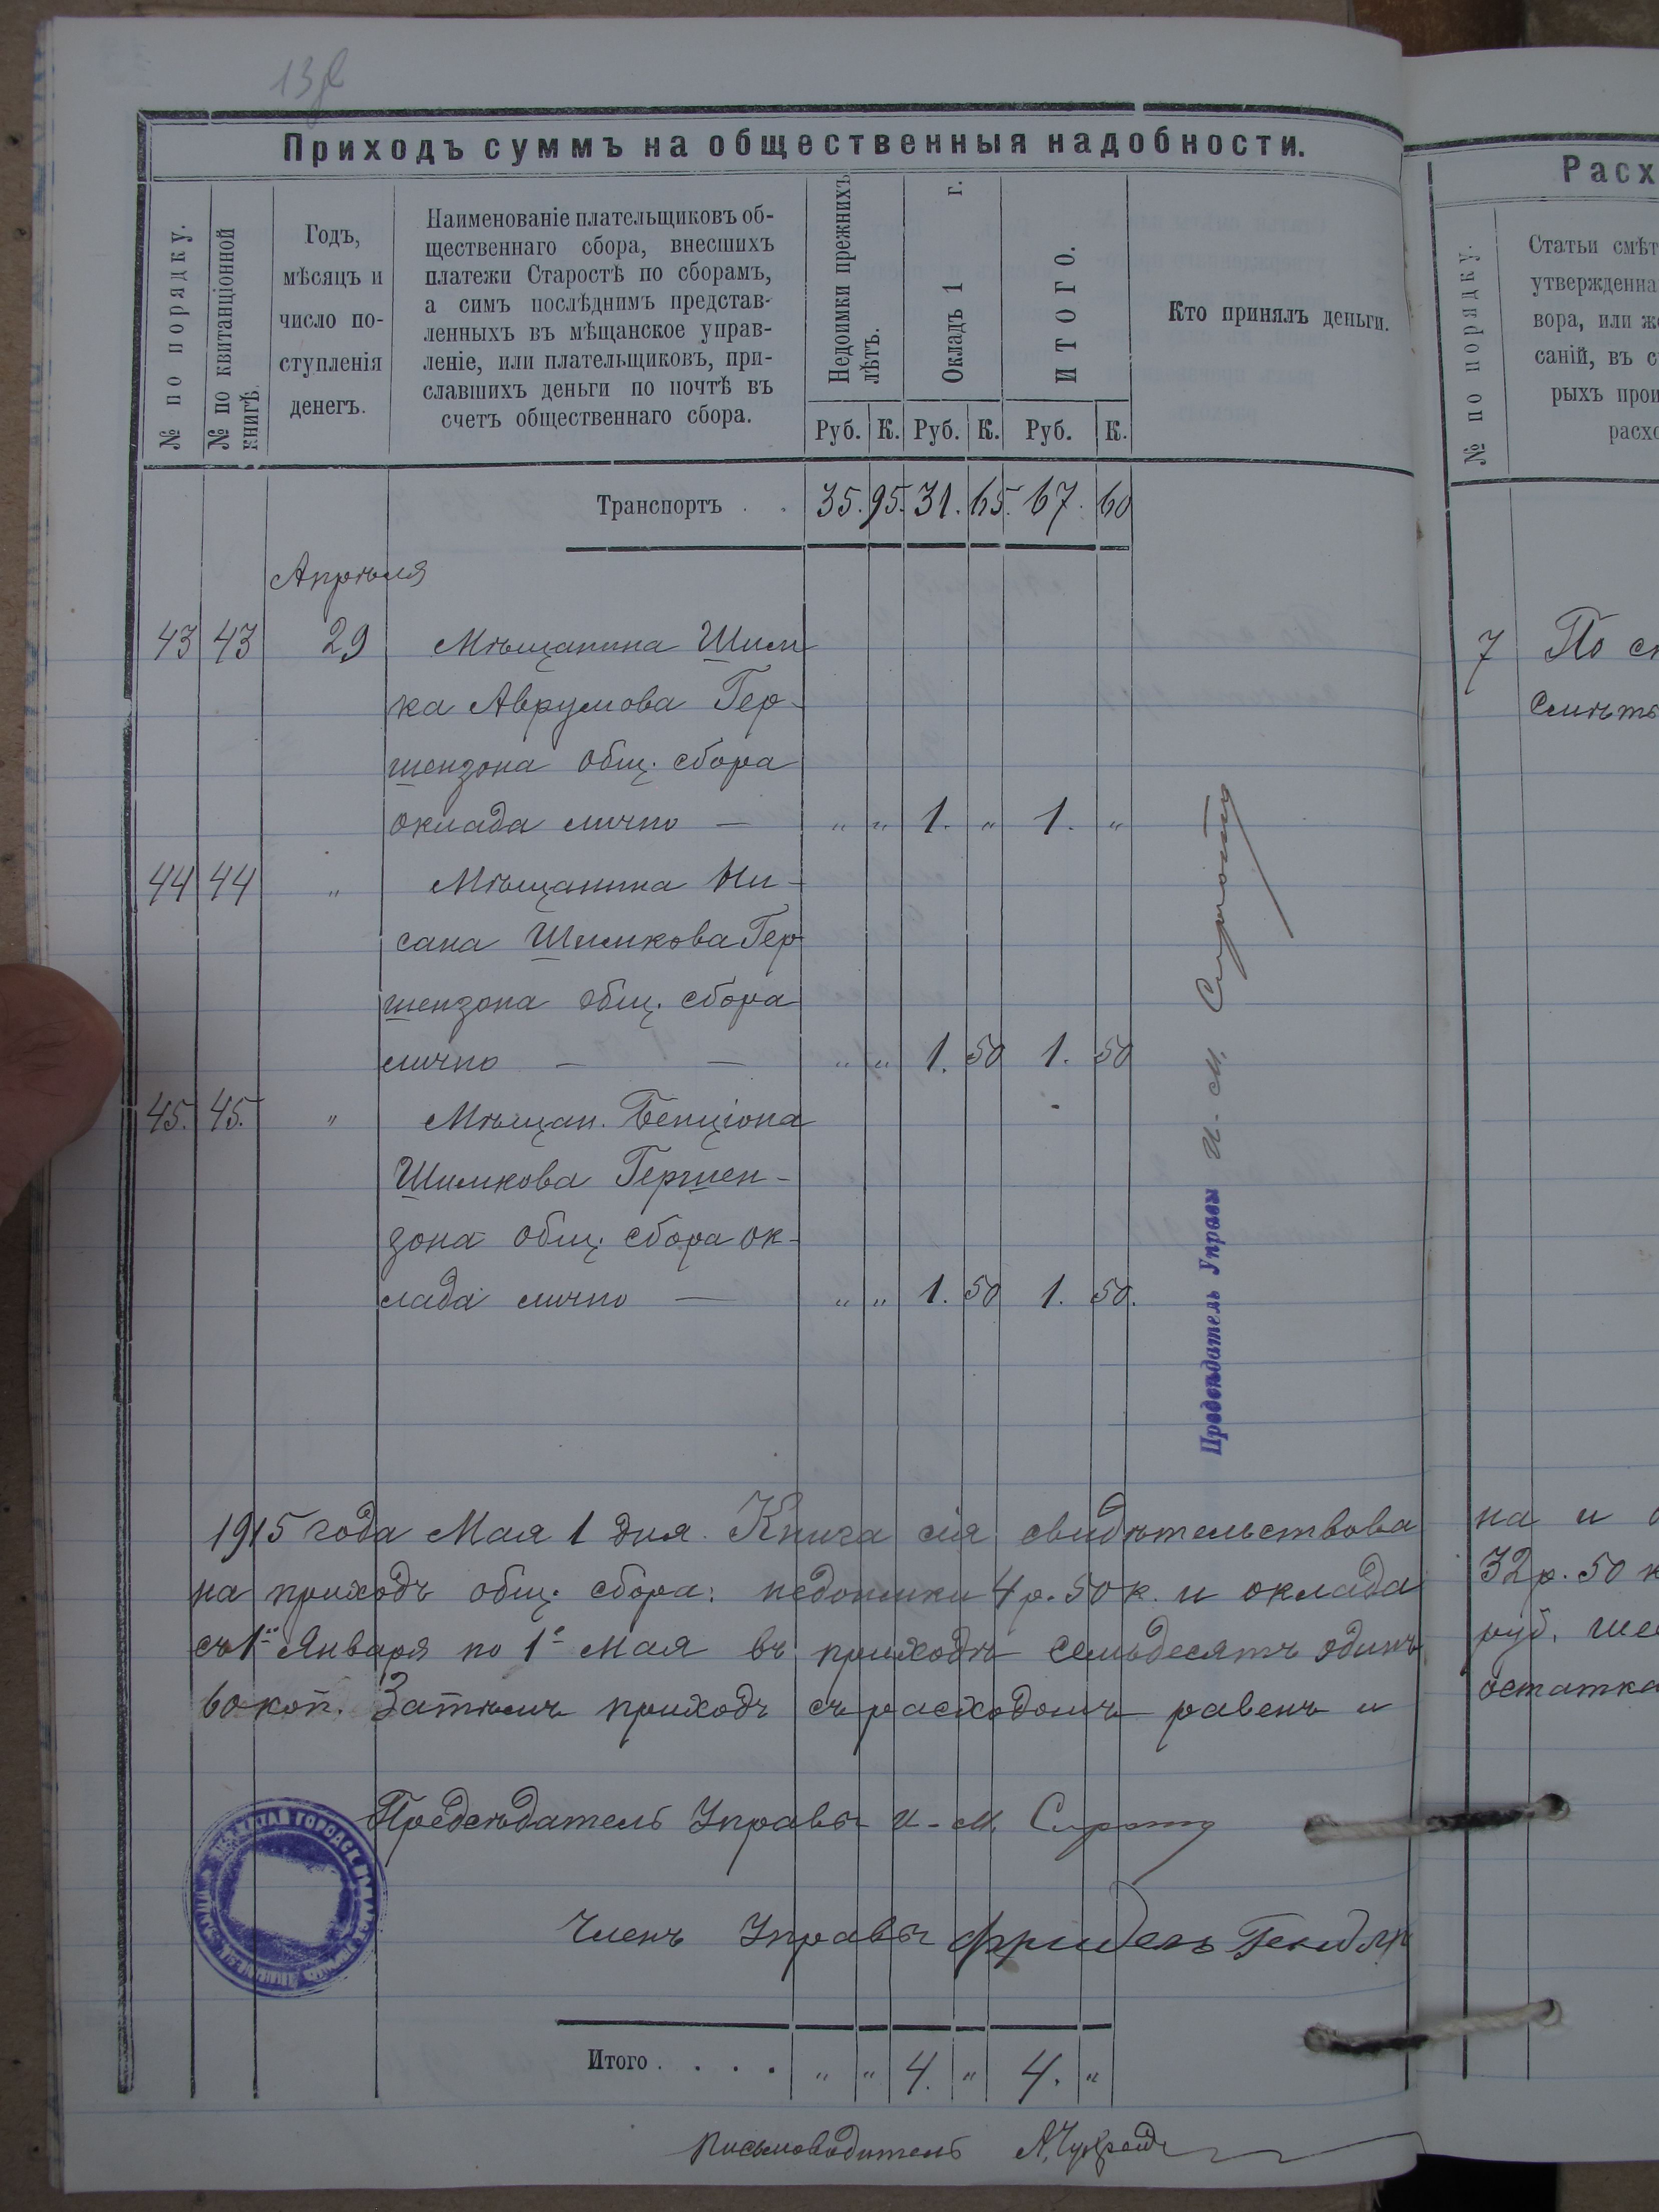 Приходъ суммъ на общественныя надобности.
№ по порядку.
№ по квитанціонной
книгѣ.
Годъ,
мѣсяцъ и
число по-
ступленія
денегъ.
Наименованіе плательщиковъ об-
щественнаго сбора, внесшихъ
платежи Старостѣ по сборамъ,
а симъ послѣднимъ представ-
ленныхъ въ мѣщанское управ-
леніе, или плательщиковъ, при-
славшихъ деньги по почтѣ въ
счетъ общественнаго сбора.
Недоимки прежнихъ
лѣтъ.
Окладъ 1 г.
ИТОГО.
Кто принялъ деньги.
Руб. К. Руб. К. Руб. К.
Транспортъ . . 35. 95. 31. 65. 67. 60
Апрѣля
43 43 29 Мѣщанина Шим
ка Аврумова Гер-
шензона общ. сбора
оклада лично — " " 1. " 1. "
44 44 " Мѣщанина Ни-
сана Шимкова Гер
шензона общ. сбора
лично — — " " 1. 50 1. 50
45. 45. " Мѣщан. Бенціона
Шимкова Гершен-
зона общ. сбора ок-
лада лично — " " 1. 50 1. 50.
Предсѣдатель Управы И. М.
1915 года Мая 1 дня. Книга сія свидѣтельствова
на приходъ общ. сбора: недоимки 4 р. 50 к. и оклада
съ 1го Января по 1е Мая въ приходѣ семьдесятъ одинъ
60 коп. Затѣмъ приходъ съ расходомъ равенъ и
Предсѣдатель Управы И. М.
Членъ Управы Фридель
Итого . . . . " " 4. " 4. "
Письмоводитель
Расх
№ по порядку.
Статьи смѣт
утвержденна
вора, или же
саній, въ с
рыхъ прои
расхо
7 По см
Смѣтѣ
на и
32 р. 50 к
руб. шес
остатка